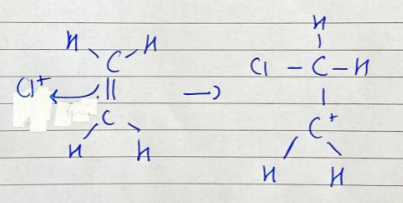 H
H H
C Cl - C - H
Cl+ || →
C C+
H H H H